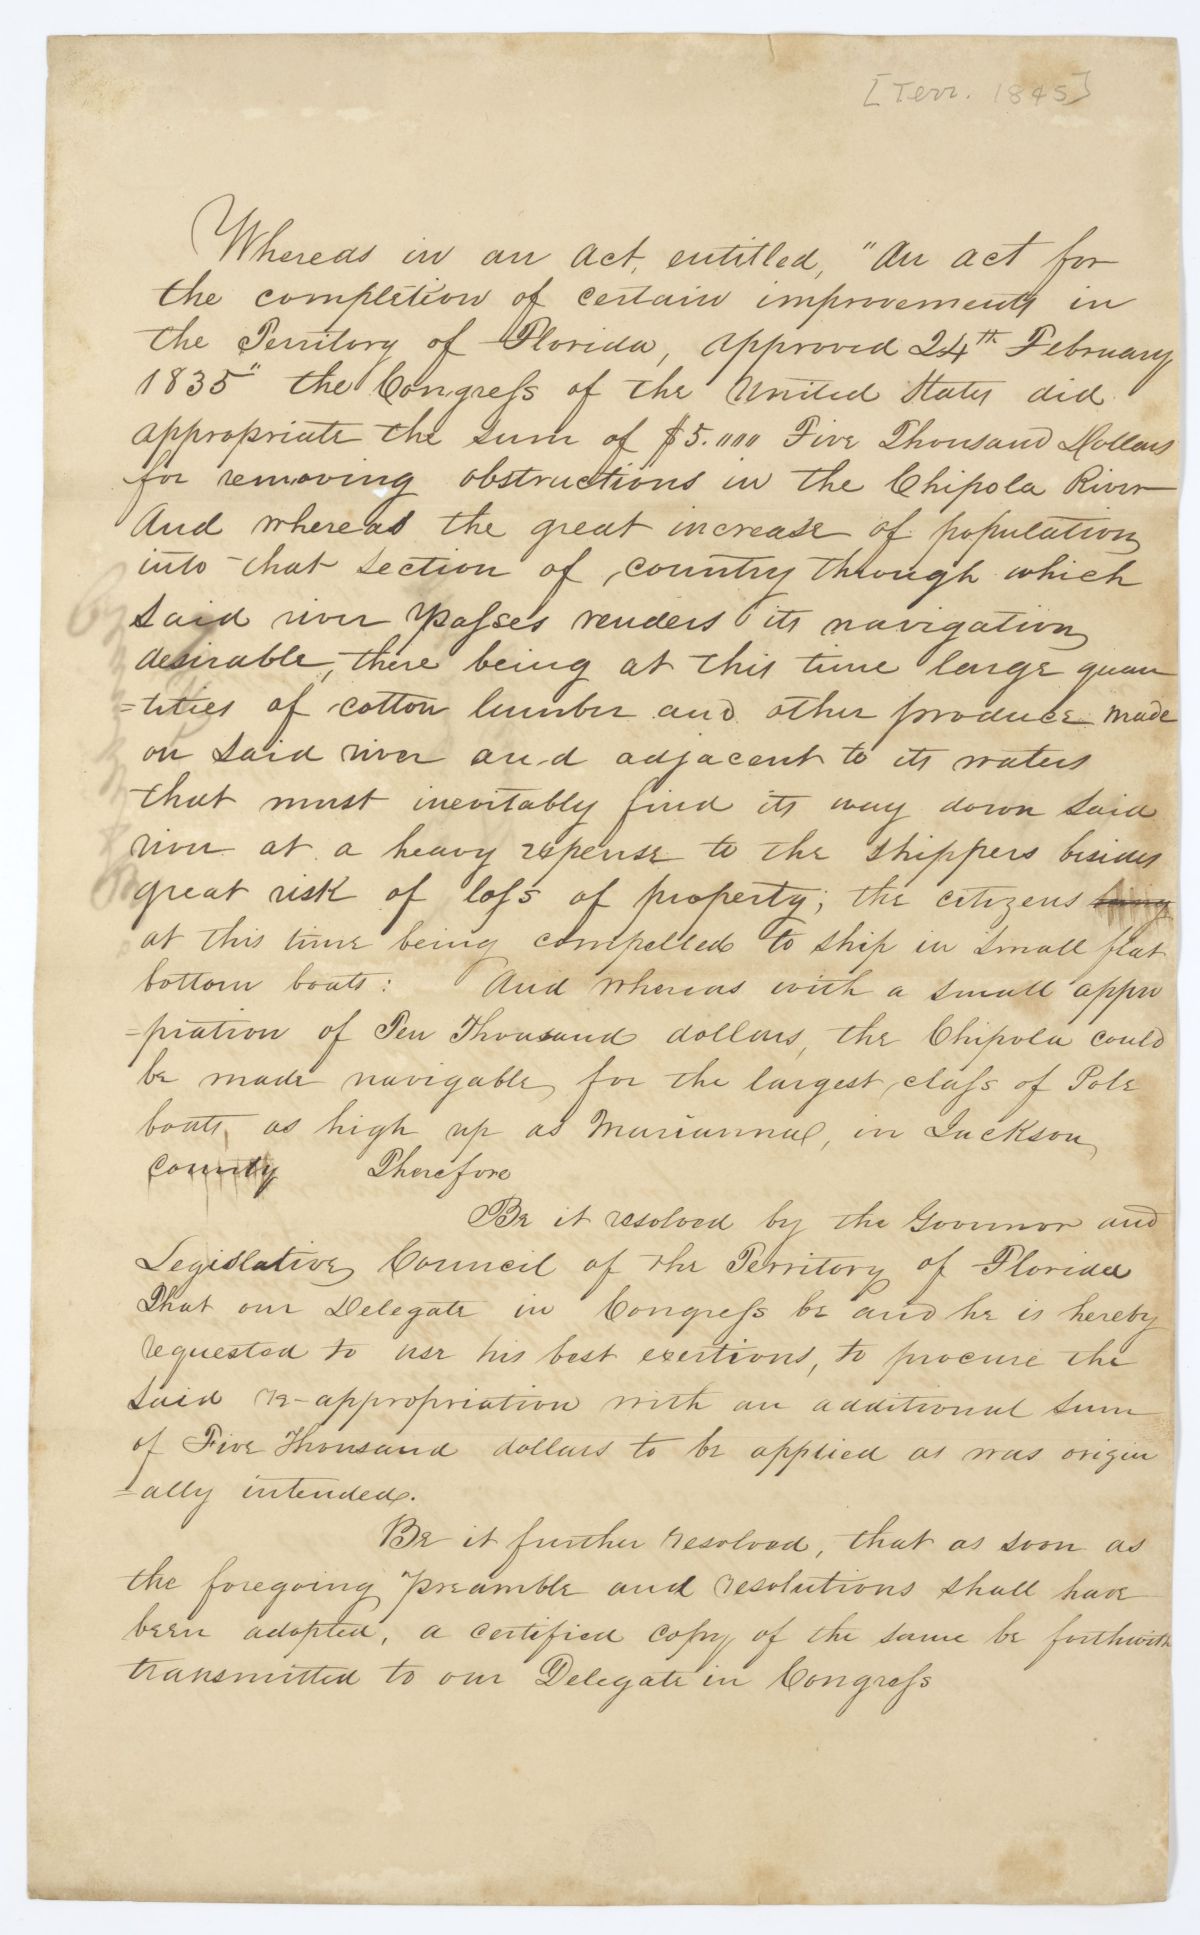 [Terr. 1845]
Whereas in an Act, entitled, "An act for
the completion of certain improvements in
the Territory of Florida, approved 24th February
1835" the Congress of the United States did
appropriate the sum of $5.000 Five Thousand Dollars
for removing obstructions in the Chipola River
And whereas the great increase of population
into that section of country through which
said river passes renders its navigation
desirable, there being at this time large quan
=tities of cotton lumber and other produce made
on said river and adjacent to its waters
that must inevitably find its way down said
river at a heavy expense to the shippers besides
great risk of loss of property; the citizens
at this time being compelled to ship in small flat
bottom boats: And whereas with a small appro
=priation of Ten Thousand dollars, the Chipola could
be made navigable, for the largest class of Pole
boats, as high up as Marianna, in Jackson
County Therefore
Be it resolved by the Governor and
Legislative Council of the Territory of Florida
That our Delegate in Congress be and he is hereby
requested to use his best exertions, to procure the
said re-appropriation with an additional sum
of Five Thousand dollars to be applied as was origin
=ally intended.
Be it further resolved, that as soon as
the foregoing preamble and resolutions shall have
been adopted, a certified copy of the same be forthwith
transmitted to our Delegate in Congress